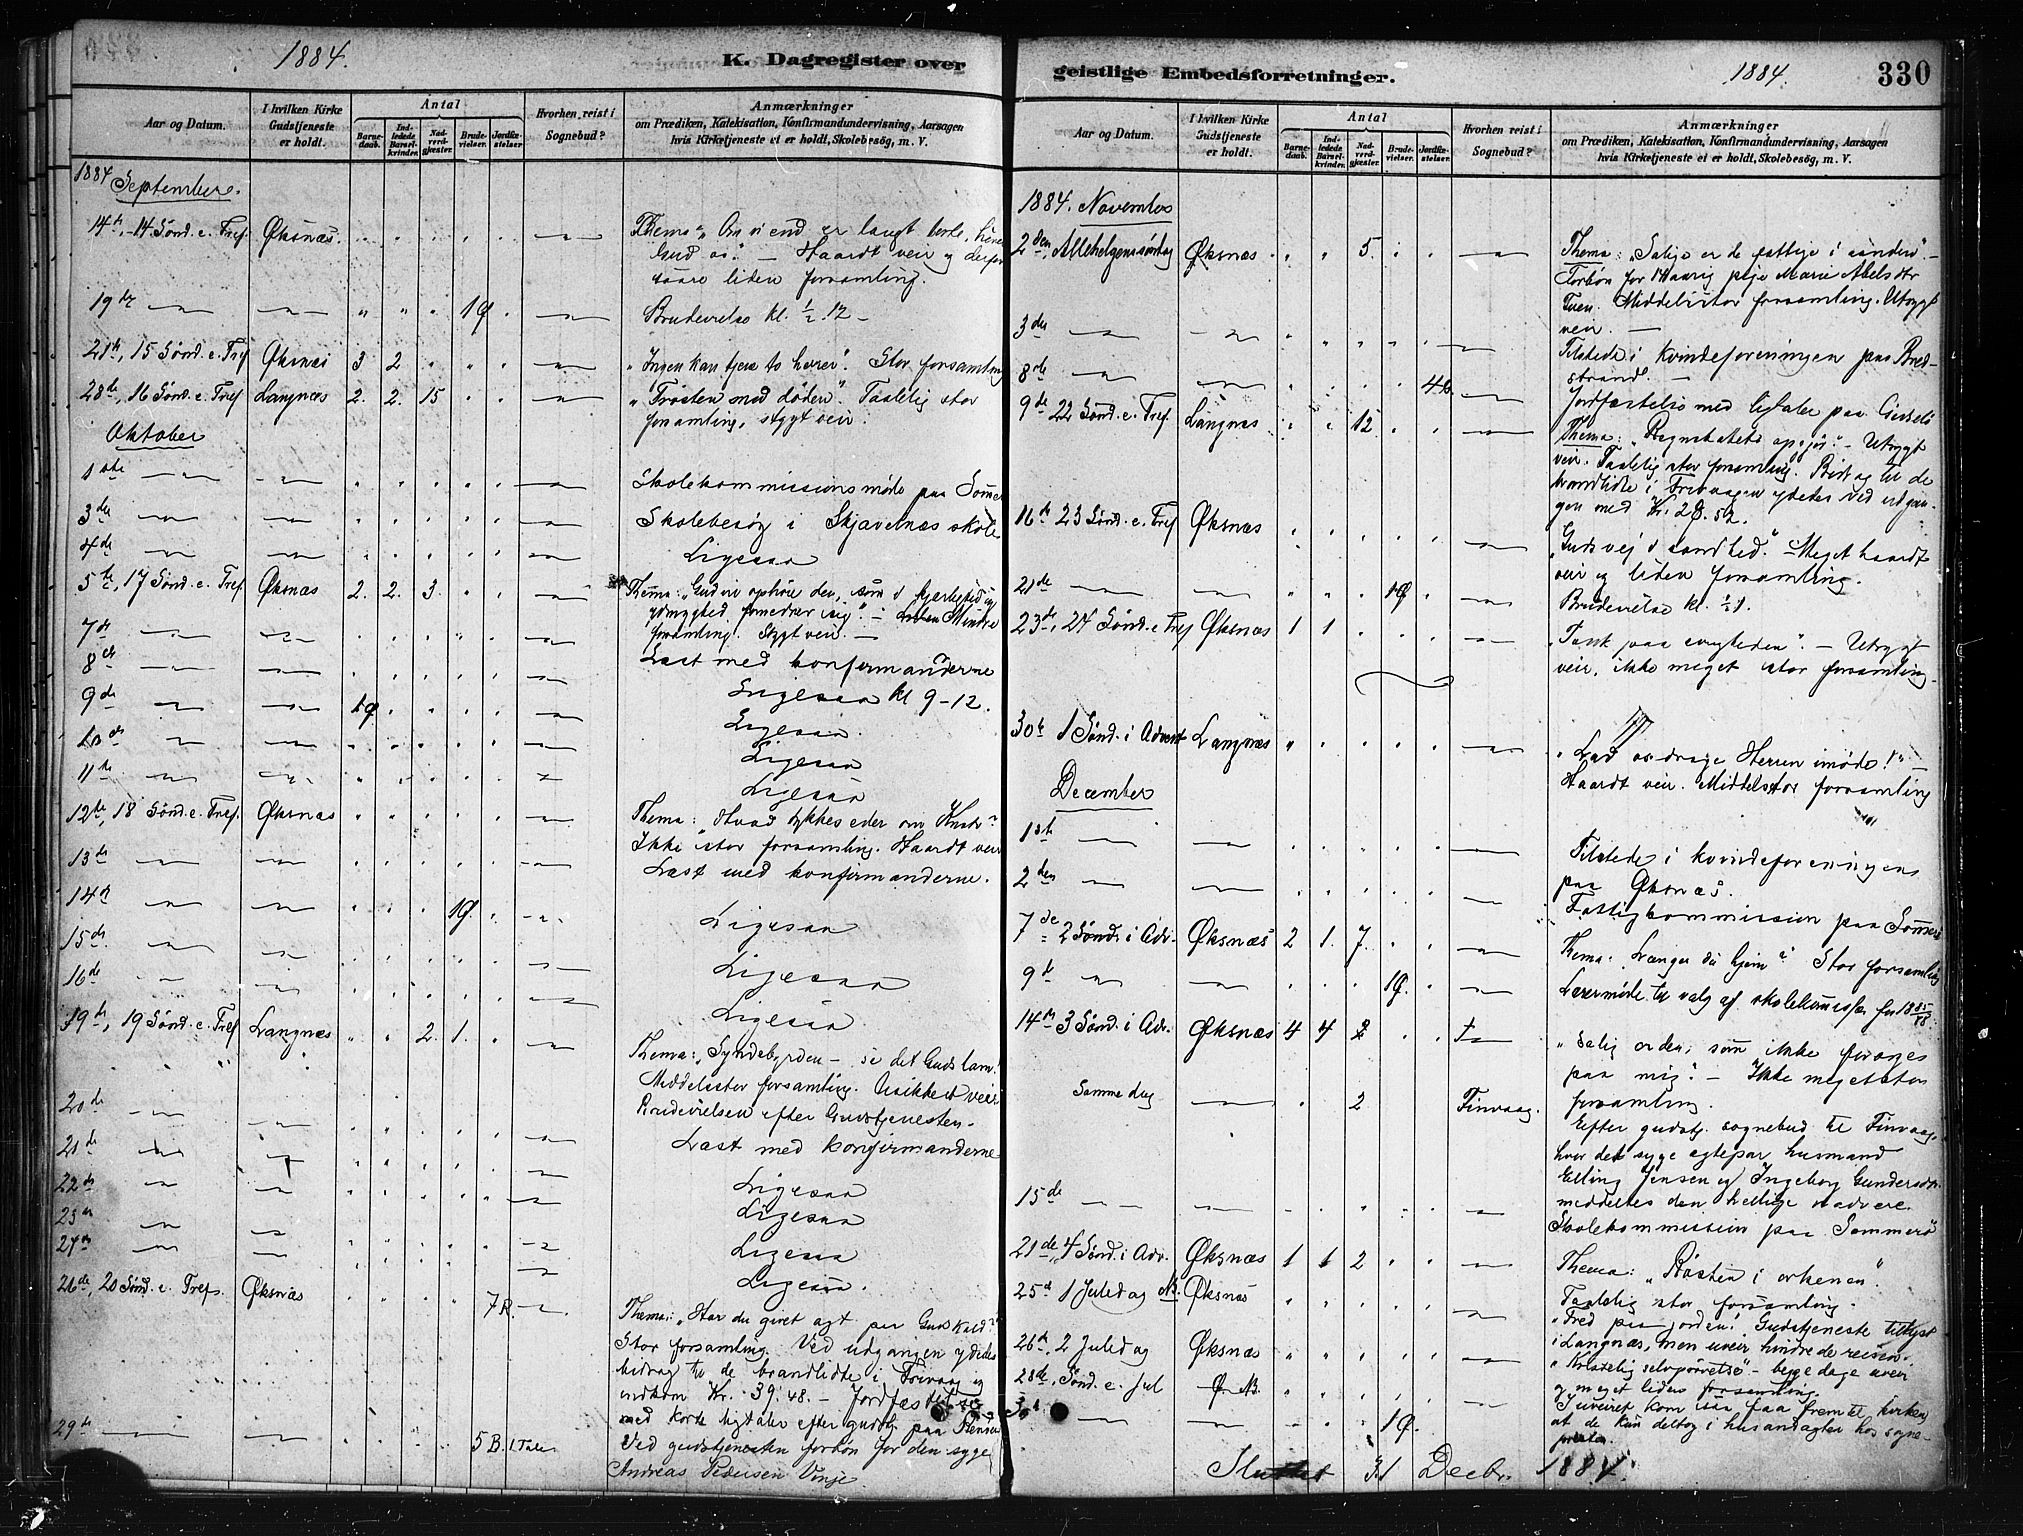 1884.
K. Dagregister over
Aar og Datum.
I hvilken Kirke Gudstjeneste er holdt.
Antal
Barnedaab.
Indledede Barselkvinder.
Nadverdgjæster.
Brudevielser.
Jordfæstelser.
Hvorhen reist i Sognebud?
Anmærkninger
om Prædiken, Katekisation, Konfirmandundervisning, Aarsagen
hvis Kirketjeneste ei er holdt, Skolebesög, m. V.
1884 September.
14de, 14 Sønd. e. Tref. Øksnæs. Thema: "Om vi end er langt borte, hører
Gud os". — Haardt veir og derfor
saare liden forsamling.
19de 1Ø Brudevielse kl. ½12 —
21de, 15 Sønd. e. Tref Øksnæs 3 2 "Ingen kan tjene to herrer". Stor forsamling
28de, 16 Sønd. e. Tref Langnæs 2. 2. 15 "Trøsten mod døden". Taalelig stor
forsamling, stygt veir.
Oktober
1ste Skolekommissionsmøde paa
3de Skolebesøg i Skjavelnæs skole
4de Ligesaa
5te, 17 Sønd. e. Tref. Øksnæs 2. 2. 3. Thema: "Gud vil ophøie den, som i kjærlighed og
ydmyghed fornedrer sig". — Mindre
forsamling. Stygt veir. —
7de Læst med konfirmanderne
8de Ligesaa kl 9–12.
9de 1Ø Ligesaa.
10de Ligesaa
11te Ligesaa
12te, 18 Sønd. e. Tref. Øksnæs Thema: "Hvad tykkes eder om Krist?"
Ikke stor forsamling. Haardt veir
13de Læst med konfirmanderne.
14de 1Ø. Ligesaa
15de Ligesaa
16de Ligesaa.
19de, 19 Sønd. e. Tref Langnæs 2. 1. Thema: "Syndebyrden — se det Guds lam!
Middelstor forsamling. Usikkert veir
Brudevielsen efter Gudstjenesten.
20de Læst med konfirmanderne
21de Ligesaa
22de Ligesaa
23de Ligesaa
24de Ligesaa.
26de, 20 Sønd. e. Tref. Øksnæs 7R. Thema: "Har du givet agt paa Guds Kald?"
Stor forsamling. Ved udgangen ydedes
bidrag til de brandlidte i og
indkom Kr. 39.48. — Jordfæstelse
med korte ligtaler efter gudstj. paa
29de 5 B. 1 Tale Ved gudstjenesten forbøn for den syge
Andreas Pedersen Vinje.
geistlige Embedsforretninger.
1884.
330
Aar og Datum.
I hvilken Kirke Gudstjeneste er holdt.
Antal
Barnedaab.
Indledede Barselkvinder.
Nadverdgjæster.
Brudevielser.
Jordfæstelser.
Hvorhen reist i Sognebud?
Anmærkninger
om Prædiken, Katekisation, Konfirmandundervisning, Aarsagen
hvis Kirketjeneste ei er holdt, Skolebesög, m. V.
1884. November
2den, Allehelgenssøndag Øksnæs 5. Thema: "Salige er de fattige i aanden". —
Forbøn for 14aarig pige Marie Abelsdtr
Tuen. Middelstor forsamling. Utrygt
veir. —
3die Tilstede i Kvindeforeningen paa Bredstrand. —
8de 4 Jordfæstelse med ligtaler paa
9de 22 Sønd. e. Tref. Langnæs 12 Thema: "Regnskabets opgjør." — Utrygt
veir. Taalelig stor forsamling. Bidrag til de
brandlidte i ydedes ved udgangen
med Kr. 28.52.
16de 23 Sønd. e. Tref Øksnæs "Guds vej i sandhed." — Meget haardt
veir og liden forsamling.
21de 1Ø Brudevielse kl. ½1.
23de, 24 Sønd. e Tref Øksnæs 1 1 "Tænk paa evigheden". — Utrygt
veir, ikke meget stor forsamling.
30te 1 Sønd. i Advent Langnæs "Lad os drage Herren imøde!" —
Haardt veir. Middelstor forsamling
December
1ste Tilstede i kvindeforeningen
paa Øksnæs.
2den Fattigkommission paa
7de 2 Sønd. i Adv. Øksnæs 2 1. 7. Thema: Længes du hjem? Stor forsamling
9de 1Ø. Læremøde til valg af skolekommissær for 1885/88
14de 3 Sønd. i Adv. Øksnæs 4 4 2 "Salig er den, som ikke forarges
paa mig". — Ikke meget stor
forsamling.
Samme dag 2 Finvaag. Efter gudstj. sognebud til Finvaag,
hvor det syge ægtepar husmand
Elling Jensen og Ingeborg Gundersdtr
meddeltes den hellige nadvere.
15de Skolekommission paa Sommerø
21de, 4 Sønd. i Adv. Øksnæs 1 1 2 Thema: "Røsten i ørkenen".
Taalelig stor forsamling.
25de 1 Juledag Øksnæs "Fred paa jorden! Gudstjeneste tillyst
i Langnæs, men uveir hindrede reisen.
26de, 2 Juledag Øksnæs "Kristelig selvprøvelse" — begge dage uveir
og meget liden forsamling.
28de, Sønd. e. Jul Ø. I uveiret kom saa faa frem til kirken
at de kun deltog i husandagter hos sognepresten.
31 1Ø.
Sluttet 31 Decbr. 1884.